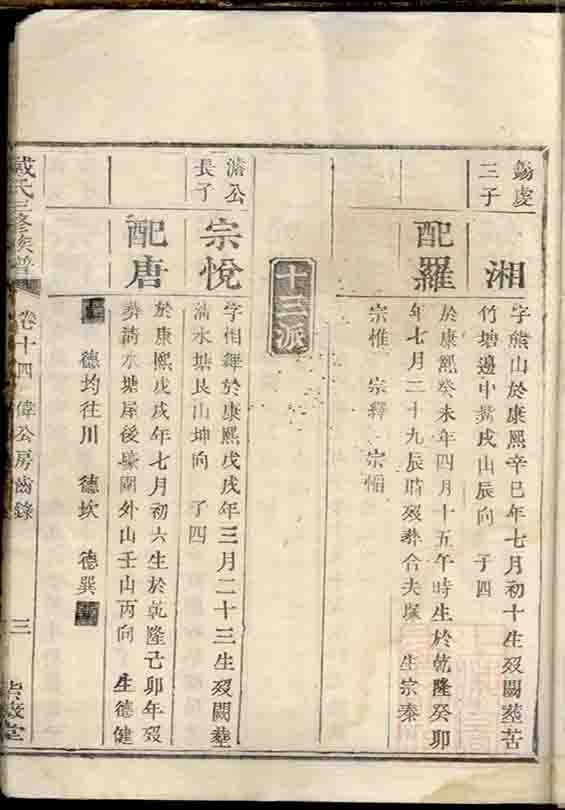 錫慶
三子
湘
字熊山於康熙辛巳年七月初十生歿闕塟苦
竹塘邊中嵩戌山辰向 子四
配羅
於康熙癸未年四月十五午時生於乾隆癸卯
年七月二十九辰時歿葬合夫塚 生宗泰
宗惟 宗釋 宗
十三派
公
長子
宗悅
字相舞於康熙戊戌年三月二十三生歿闕塟
清水塘艮山坤向 子四
配唐
於康熙戊戌年七月初六生於乾隆己卯年歿
葬清水塘屋後壕圍外山壬山丙向 生德健
德均往川 德坎 德巽
戴氏三修族譜
卷十四 偉公房齒錄
三
堂